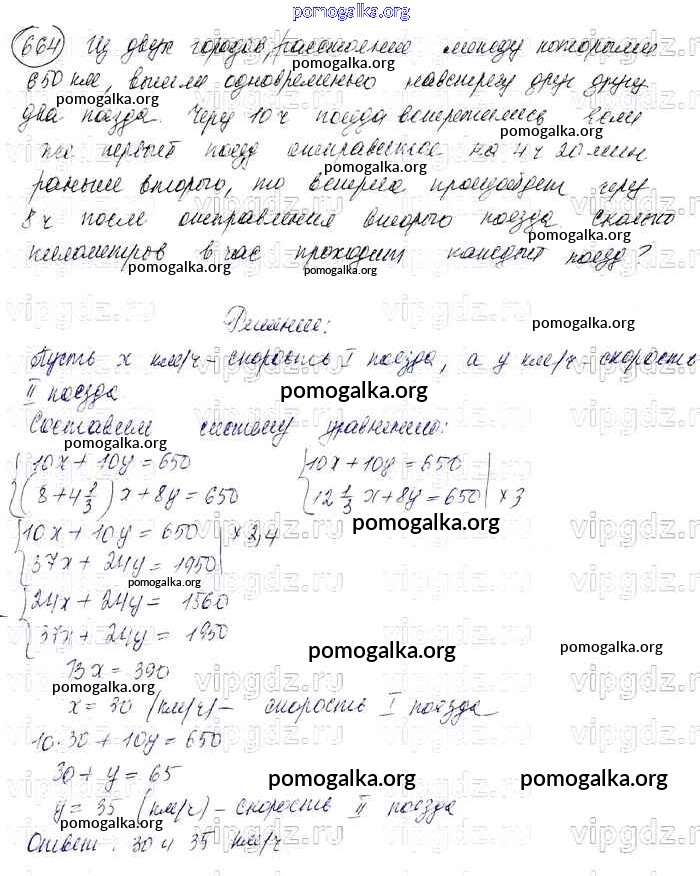 pomogalka.org
664 Из двух городов, расстояние между которыми
650 км, вышли одновременно навстречу друг другу
два поезда. Через 10 ч поезда встретились. Если
же первый поезд отправится на 4 ч 20 мин
раньше второго, то встреча произойдет через
8 ч после отправления второго поезда. Сколько
километров в час проходит каждый поезд?
Решение:
Пусть x км/ч – скорость I поезда, а y км/ч – скорость
II поезда
Составим систему уравнений:
10x + 10y = 650
(8 + 4 1/3) x + 8y = 650
10x + 10y = 650
12 1/3 x + 8y = 650 | × 3
10x + 10y = 650 | × 2,4
37x + 24y = 1950
24x + 24y = 1560
37x + 24y = 1950
13x = 390
x = 30 (км/ч) – скорость I поезда
10·30 + 10y = 650
30 + y = 65
y = 35 (км/ч) – скорость II поезда
Ответ: 30 и 35 км/ч